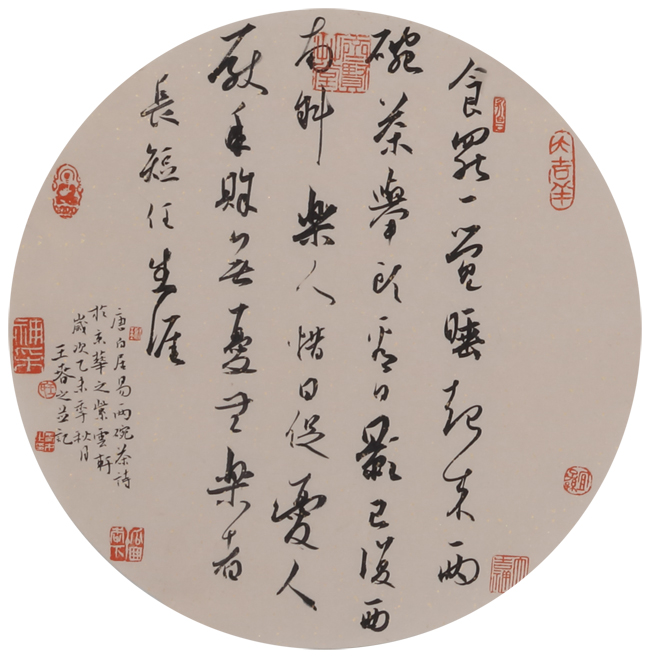 食罷一覺睡起來兩
碗茶舉頭看日影已復西
南斜樂人惜日促憂人
厭年賒無憂無樂者
長短任生涯
唐白居易兩碗茶詩
於京華之紫雲軒
歲次乙未年秋月
王春之並記
大吉羊